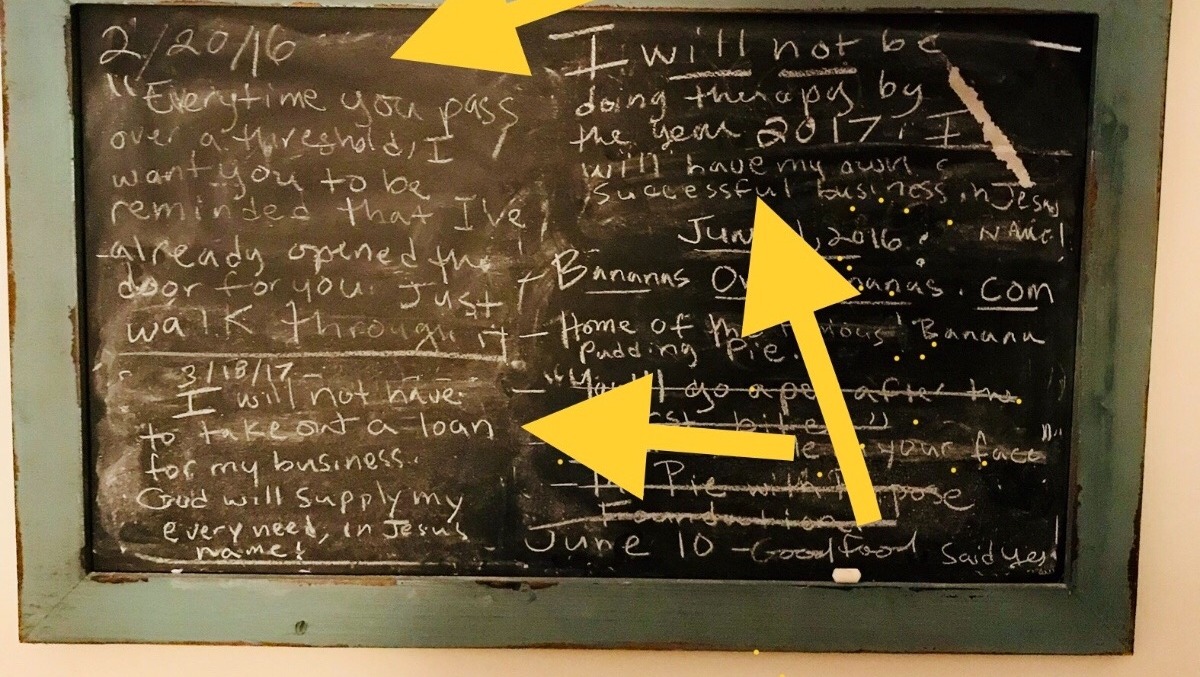 2/20/16
"Everytime you pass
over a threshold, I
want you to be
reminded that I've
already opened the
door for you. Just
walk through it
3/18/17
I will not have
to take out a loan
for my business.
God will supply my
every need, in Jesus
name!
I will not be
doing therapy by
the year 2017. I
will have my own
successful business in Jesus
NAME!
2016
Bananas . com
Home of Banana
Pudding Pie.
"You'll go ape after the
bite"
your face"
Pie with
Foundation
June 10 - Good food said yes!